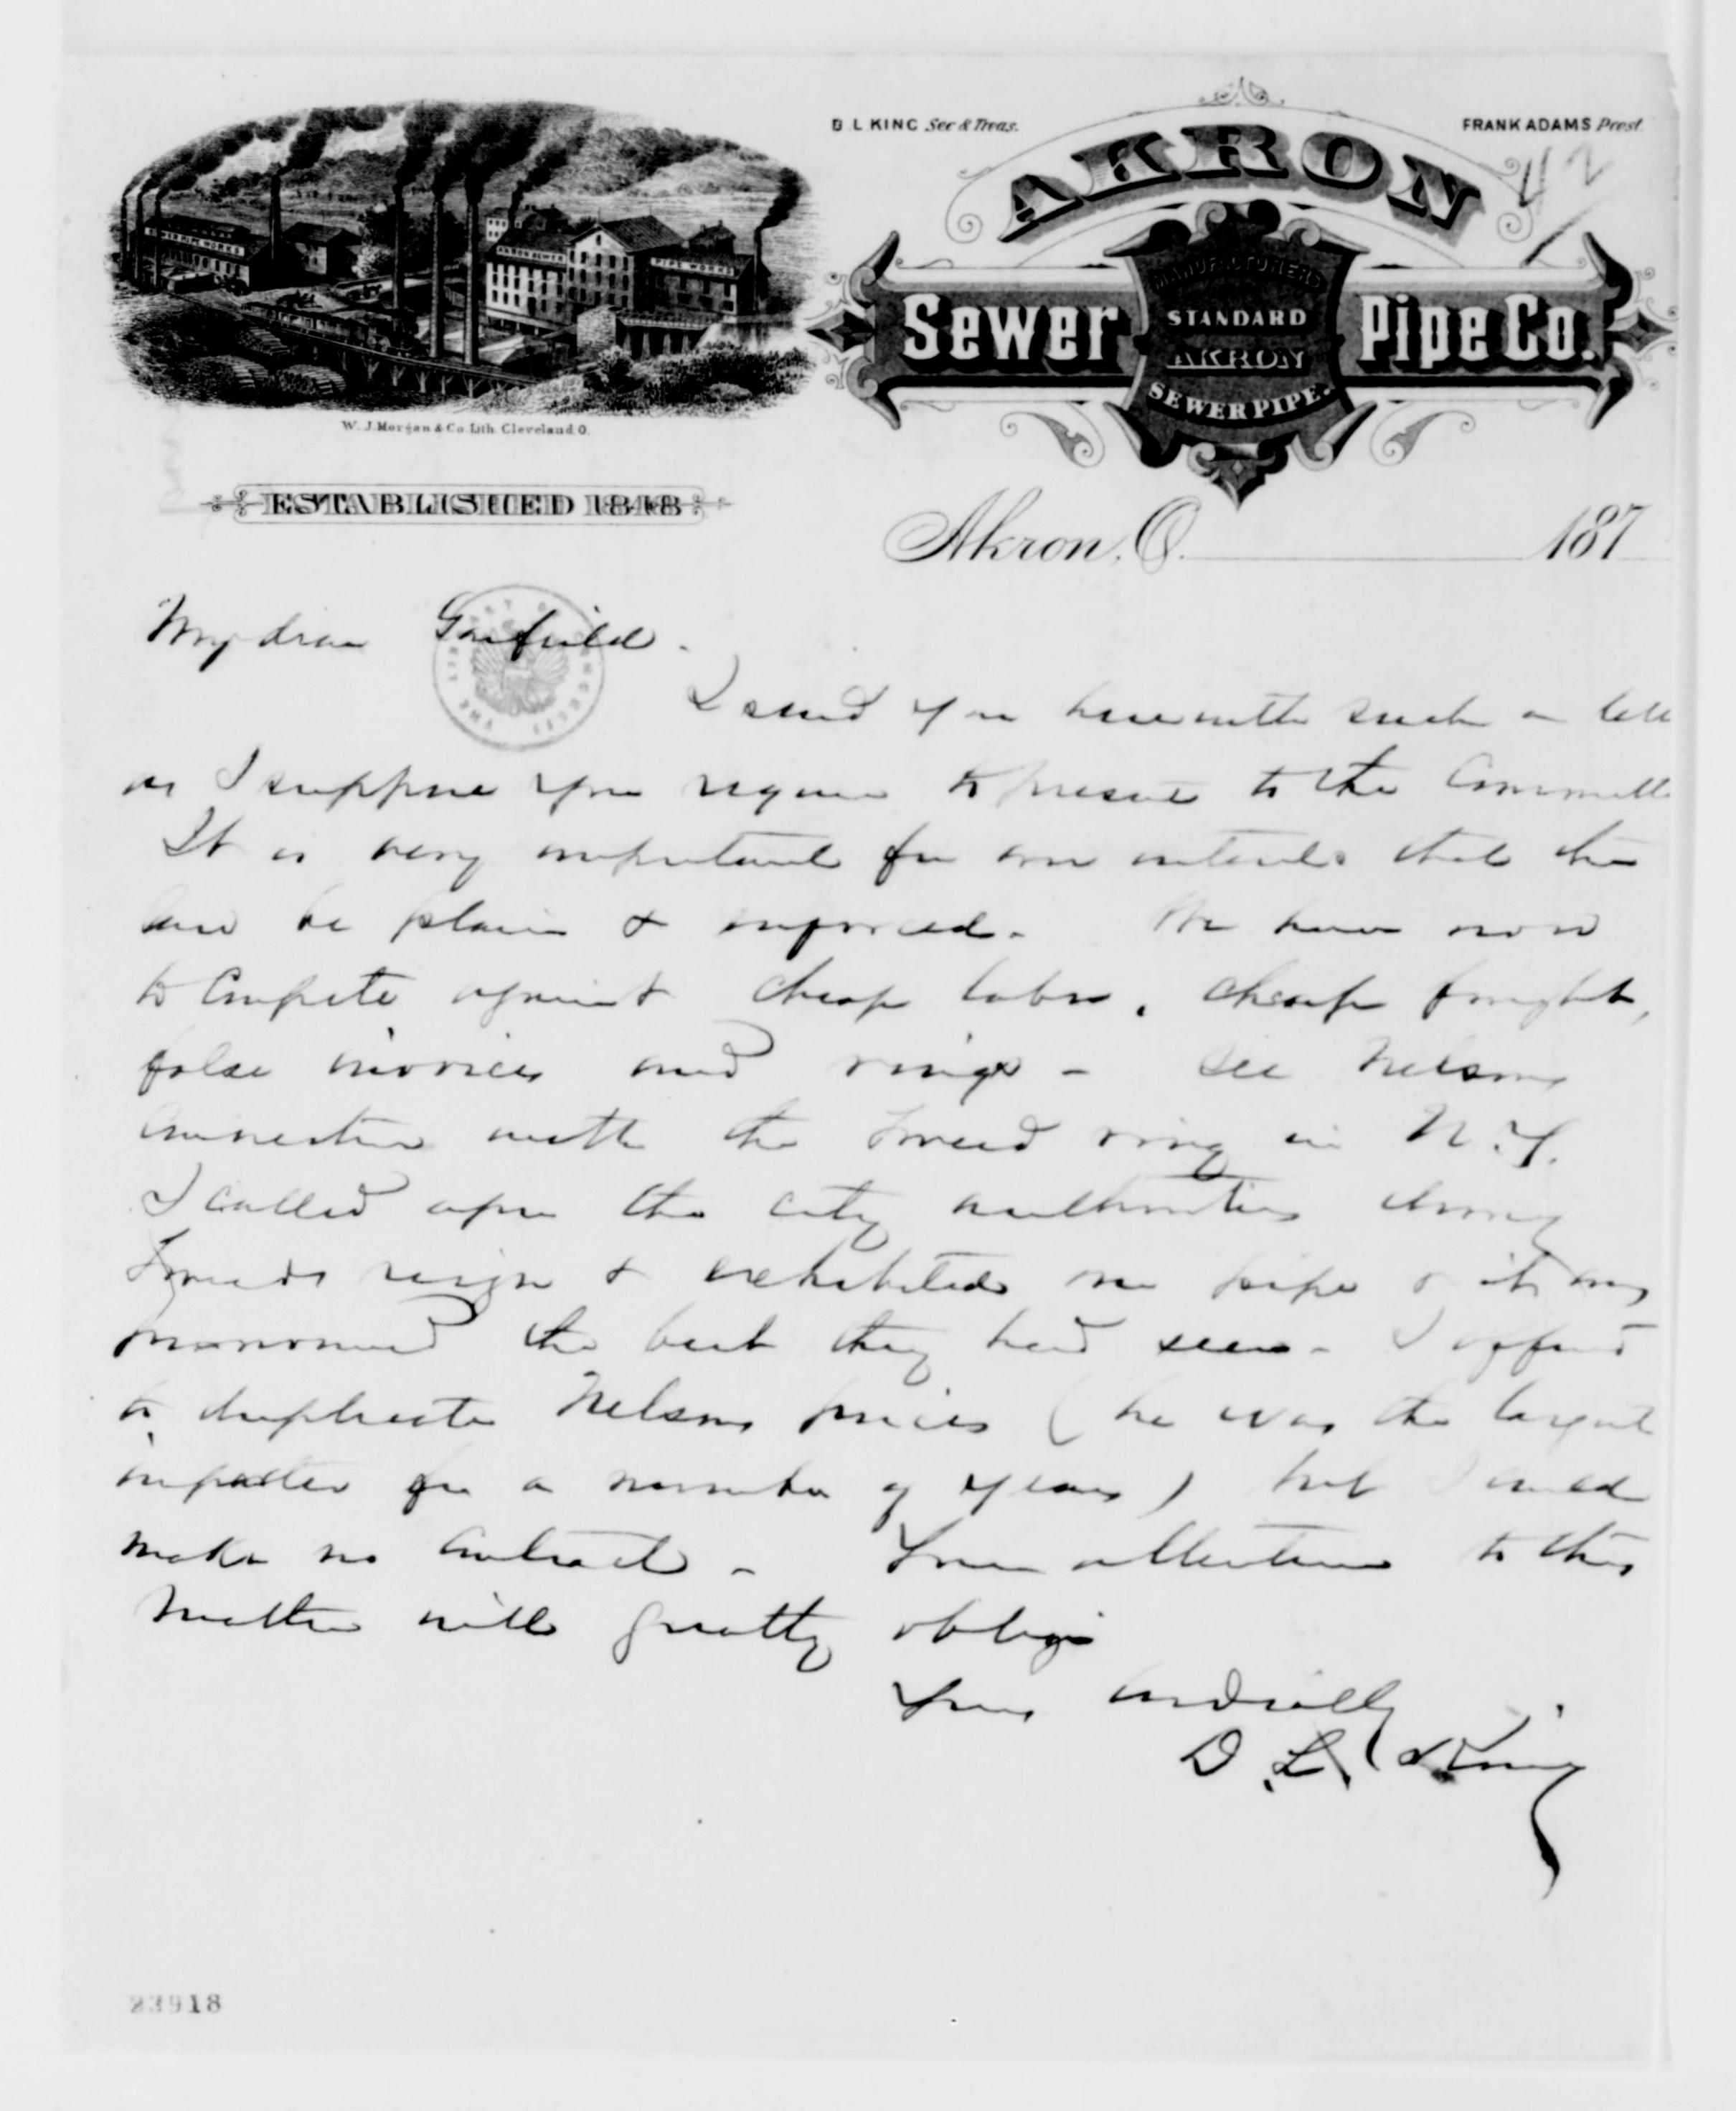 D. L. KING Sec & Treas.
FRANK ADAMS Prest.
42
AKRON
Sewer Pipe Co.
MANUFACTURERS
STANDARD
AKRON
SEWER PIPE.
SEWER PIPE WORKS
AKRON SEWER PIPE WORKS
W. J. Morgan & Co. Lith. Cleveland O.
ESTABLISHED 1848
Akron, O. 187
My dear Garfield.
I send you herewith such a
as I suppose you require to present to the Committee
It is very important for our interests that the
law be plain & enforced. We have now
to compete against cheap labor, cheap freights,
false invoices and rings - See Nelsons
connection with the Tweed ring in N.Y.
I called upon the city authorities during
Tweeds reign & exhibited our pipe & it was
pronounced the best they had seen - I offered
to duplicate Nelsons prices (he was the largest
importer for a number of years) but I could
make no contract - Your attention to this
matter will greatly oblige
Yours cordially
D. L. King
THE LIBRARY OF CONGRESS
23918